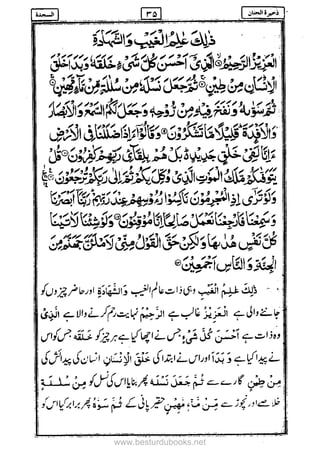 السجدة ۳۵ ذخیرۃ الجنان
ذٰلِكَ عٰلِمُ الْغَيْبِ وَالشَّهَادَةِ
الْعَزِيْزُ الرَّحِيْمُ الَّذِيْٓ اَحْسَنَ كُلَّ شَيْءٍ خَلَقَهٗ وَبَدَاَ خَلْقَ
الْاِنْسَانِ مِنْ طِيْنٍ ثُمَّ جَعَلَ نَسْلَهٗ مِنْ سُلٰلَةٍ مِّنْ مَّآءٍ مَّهِيْنٍ
ثُمَّ سَوّٰىهُ وَنَفَخَ فِيْهِ مِنْ رُّوْحِهٖ وَجَعَلَ لَكُمُ السَّمْعَ وَالْاَبْصَارَ
وَالْاَفْـِٕدَةَ قَلِيْلًا مَّا تَشْكُرُوْنَ وَقَالُوْٓا ءَاِذَا ضَلَلْنَا فِي الْاَرْضِ
ءَاِنَّا لَفِيْ خَلْقٍ جَدِيْدٍ بَلْ هُمْ بِلِقَآئِ رَبِّهِمْ كٰفِرُوْنَ قُلْ
يَتَوَفّٰىكُمْ مَّلَكُ الْمَوْتِ الَّذِيْ وُكِّلَ بِكُمْ ثُمَّ اِلٰى رَبِّكُمْ تُرْجَعُوْنَ
وَلَوْ تَرٰٓى اِذِ الْمُجْرِمُوْنَ نَاكِسُوْا رُءُوْسِهِمْ عِنْدَ رَبِّهِمْ رَبَّنَآ اَبْصَرْنَا
وَسَمِعْنَا فَارْجِعْنَا نَعْمَلْ صَالِحًا اِنَّا مُوْقِنُوْنَ وَلَوْ شِئْنَا لَاٰتَيْنَا
كُلَّ نَفْسٍ هُدٰىهَا وَلٰكِنْ حَقَّ الْقَوْلُ مِنِّيْ لَاَمْلَـَٔنَّ جَهَنَّمَ مِنَ
الْجِنَّةِ وَالنَّاسِ اَجْمَعِيْنَ
ذٰلِكَ عٰلِمُ الْغَيْبِ وہی ذات عالم الغیب وَالشَّهَادَةِ اور حاضر چیزوں کو
جاننے والی ہے الْعَزِيْزُ غالب ہے الرَّحِيْمُ نہایت رحم کرنے والا ہے الَّذِيْٓ
وہ ذات ہے اَحْسَنَ كُلَّ شَيْءٍ جس نے اچھا کیا ہے ہر چیز کو خَلَقَهٗ جس کو اس
نے پیدا کیا ہے وَبَدَاَ اور اس نے ابتدا کی خَلْقَ الْاِنْسَانِ انسان کی پیدائش کی
مِنْ طِيْنٍ گارے سے ثُمَّ جَعَلَ نَسْلَهٗ پھر بنایا اس کی نسل کو مِنْ سُلٰلَةٍ
خلاصے اور نچوڑ سے مِّنْ مَّآءٍ مَّهِيْنٍ حقیر پانی کے ثُمَّ سَوّٰىهُ پھر برابر کیا اس کو
www.besturdubooks.net